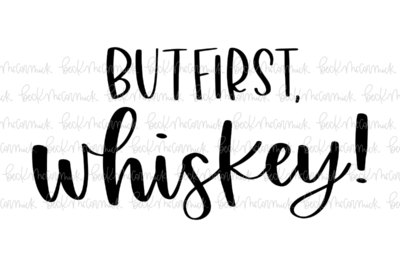 BUT FIRST,
whiskey!